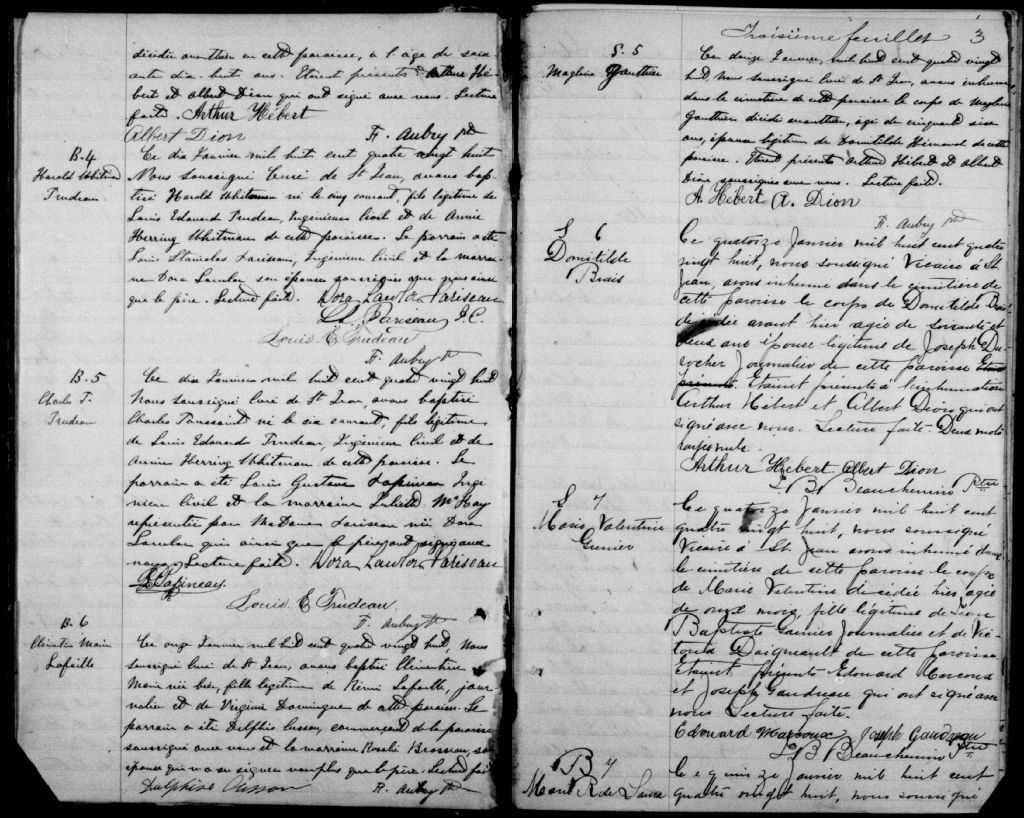 décédée avanthier en cette paroisse, à l'âge de soix
ante dix huit ans. Etaient présents Arthur Hé-
bert et Albert Dion qui ont signé avec nous. Lecture
faite. Arthur Hébert
Albert Dion F. Aubry ptr
B. 4
Harold Whitman
Trudeau
Ce dix Janvier mil huit cent quatre vingt huit
Nous soussigné Curé de St Jean, avons bap-
tisé Harold Whitman né le cinq courant, fils légitime de
Louis Edouard Trudeau, Ingénieur Civil et de Annie
Herring Whitman de cette paroisse. Le parrain a été
Louis Stanislas Pariseau, Ingénieur Civil et la marrai-
ne Dora Lawlor son épouse soussignés avec nous ainsi
que le père. Lecture faite. Dora Lawlor Pariseau
Pariseau I.C.
Louis E Trudeau
F. Aubry ptr
B. 5
Charles T.
Trudeau
Ce dix Janvier mil huit cent quatre vingt huit
Nous soussigné Curé de St Jean, avons baptisé
Charles Toussaint né le six courant, fils légitime
de Louis Edouard Trudeau, Ingénieur Civil et de
Annie Herring Whitman de cette paroisse. Le
parrain a été Louis Gustave Papineau Ingé
nieur civil et la marraine Juliett McKay
représentée par Madame Pariseau née Dora
Lawlor qui ainsi que le père ont signé avec
nous. Lecture faite. Dora Lawlor Pariseau
Papineau.
Louis E Trudeau.
F. Aubry ptr
B. 6
Clémentine Marie
Lafaille
Ce onze Janvier mil huit cent quatre vingt huit, Nous
soussigné Curé de St Jean, avons baptisé Clémentine
Marie née hier, fille légitime de Rémi Lafaille, jour
nalier et de Virginie Domingue de cette paroisse. Le
parrain a été Delphis Cusson, commerçant de la paroisse
soussigné avec nous et la marraine Rosalie Brosseau, son
épouse qui n'a su signer non plus que le père. Lecture faite
Delphise Cusson F. Aubry ptr
Troisième feuillet 3
S. 5
Maglane Gauthier
Ce douze Janvier, mil huit cent quatre vingt
huit Nous soussigné Curé de St Jean, avons inhumé
dans le cimetière de cette paroisse le corps de
Gauthier décédé avanthier, agé de cinquante six
ans, époux légitime de Domitilde de cette
paroisse. Etaient présents Arthur Hébert et Albert
Dion, soussignés avec nous. Lecture faite.
A. Hébert A. Dion
F. Aubry ptr
S 6
Domitilde
Brais
Ce quatorze Janvier mil huit cent quatre
vingt huit, nous soussigné Vicaire à St.
Jean, avons inhumé dans le cimetière de
cette paroisse le corps de Domitilde Brais
décédée avant hier agée de soixante et
deux ans épouse légitime de Joseph Du-
rocher Journalier de cette paroisse Etaient
présents Etaient présents à l'inhumation
Arthur Hébert et Albert Dion qui ont
signé avec nous. Lecture faite. Deux mots
rayés nuls.
Arthur Hébert Albert Dion
L B Beauchemin Ptre
S 7
Marie Valentine
Garnier
Ce quatorze Janvier mil huit cent
quatre vingt huit, nous soussigné
Vicaire à St. Jean avons inhumé dans
le cimetière de cette paroisse le corps
de Marie Valentine décédée hier agée
de onze mois, fille légitime de Jean
Baptiste Garnier Journalier et de Vic-
toria Daigneault de cette paroisse
Etaient présents Edouard Marcoux
et Joseph Gaudreau qui ont signé avec
nous Lecture faite.
Edouard Marcoux Joseph Gaudreau
L B Beauchemin Ptre
B 7
Marie R. de
Ce quinze Janvier mil huit cent
quatre vingt huit, nous soussigné